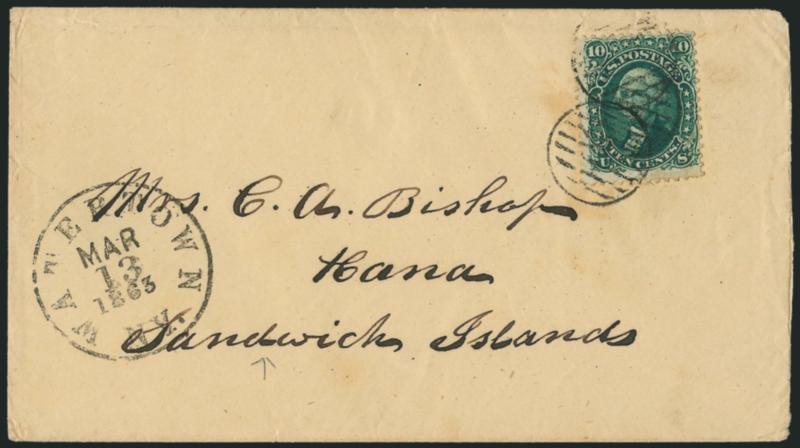 10 10
U.S. POSTAGE
TEN CENTS.
U S
Mrs. C. A. Bishop
Hana
Sandwich Islands
WATERTOWN
MAR
13
1863